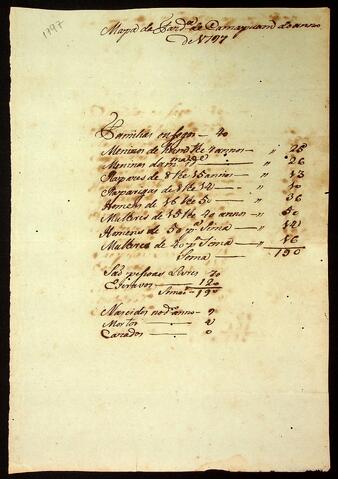 1797
Mapa da Fazdª de Camaynam do anno
de 1797
Familias ou fogos — 40
Meninos de hum the 7 annos — " 28
Meninas da mª idade — " 26
Rapazes de 8 the 15 annos — " 13
Raparigas de 8 the 14 — " 10
Homens de 16 the 50 — " 36
Mulheres de 15 the 40 annos — " 50
Homens de 50 pª Sima — " 14
Mulheres de 40 pª Sima — " 16
Soma — 190
São pessoas Livres 70
Escravos — 120
Soma — 190
Nascidos no dº anno — 9
Mortos — 2
Cazados — 0